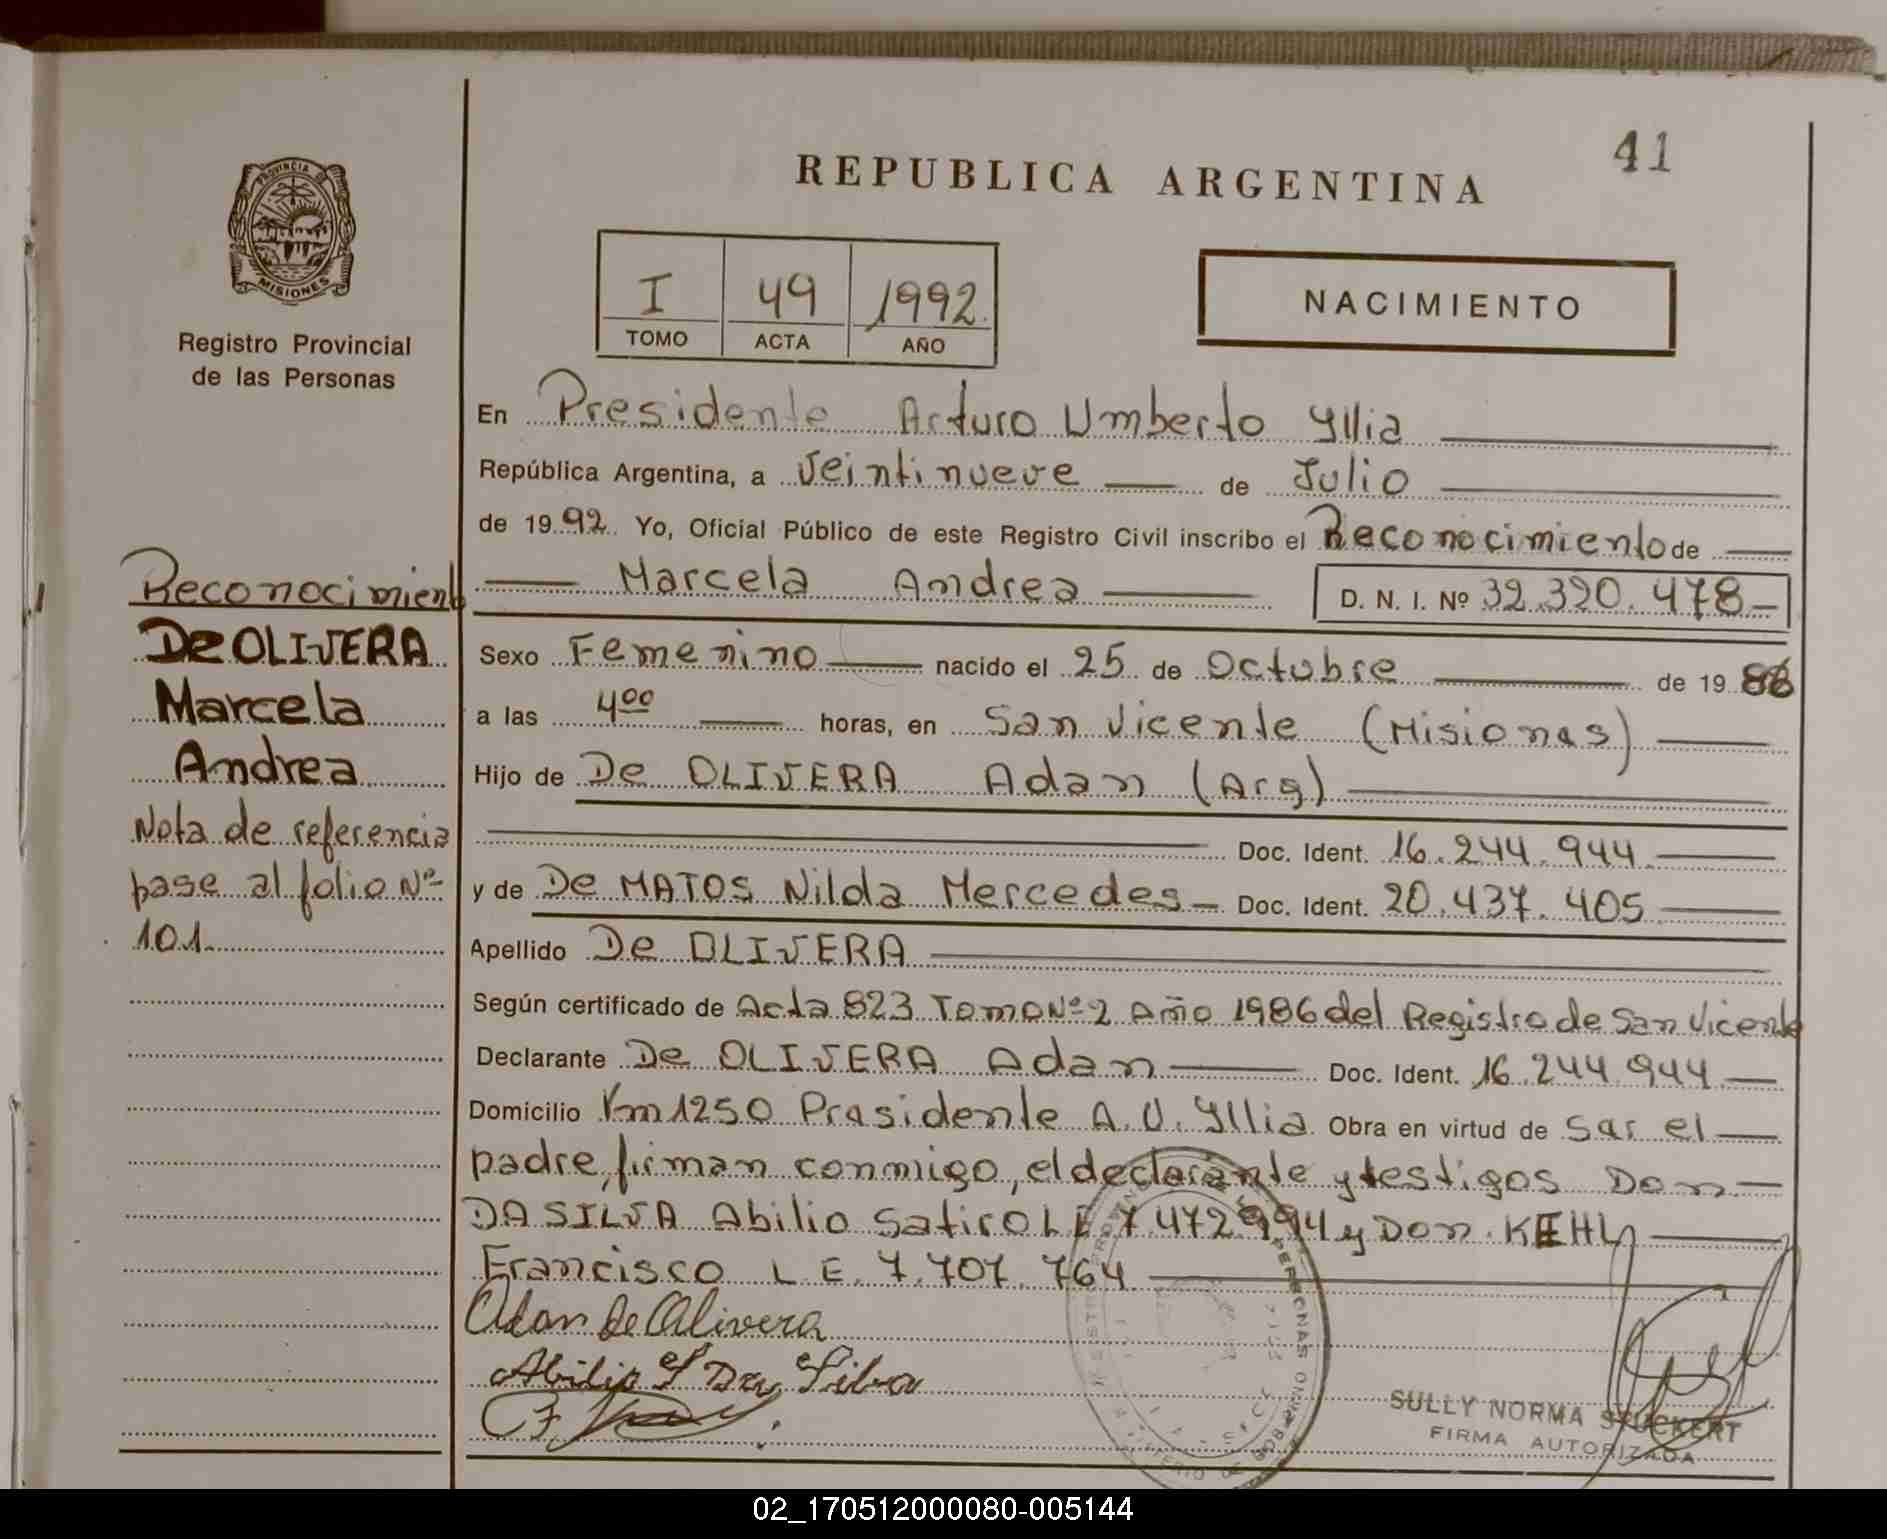 41
REPUBLICA ARGENTINA
PROVINCIA DE
MISIONES
Registro Provincial
de las Personas
I 49 1992
TOMO ACTA AÑO
NACIMIENTO
En Presidente Arturo Umberto Yllia
República Argentina, a veintinueve de Julio
de 1992 Yo, Oficial Público de este Registro Civil inscribo el Reconocimiento de
Marcela Andrea D. N. I. Nº 32.320.478
Sexo Femenino nacido el 25 de Octubre de 19
a las 4⁰⁰ horas, en San Vicente (Misiones)
Hijo de De OLIVERA Adan (Arg)
Doc. Ident. 16.244.944
y de De MATOS Nilda Mercedes Doc. Ident. 20.437.405
Apellido De OLIVERA
Según certificado de Acta 823 Tomo Nº 2 Año 1986 del Registro de San Vicente
Declarante De OLIVERA Adan Doc. Ident. 16.244.944
Domicilio Km 1250 Presidente A. U. Yllia Obra en virtud de ser el
padre, firman conmigo, el declarante y testigos Don
DA SILVA Abilio Satiro L E 7.472.994 y Don KEHL
Francisco L E. 7.707.764
Adan de Olivera
Abilio S Da Silva
SULLY NORMA STUCKERT
FIRMA AUTORIZADA
Reconocimiento
De OLIVERA
Marcela
Andrea
Nota de referencia
pase al folio Nº
101
02_170512000080-005144